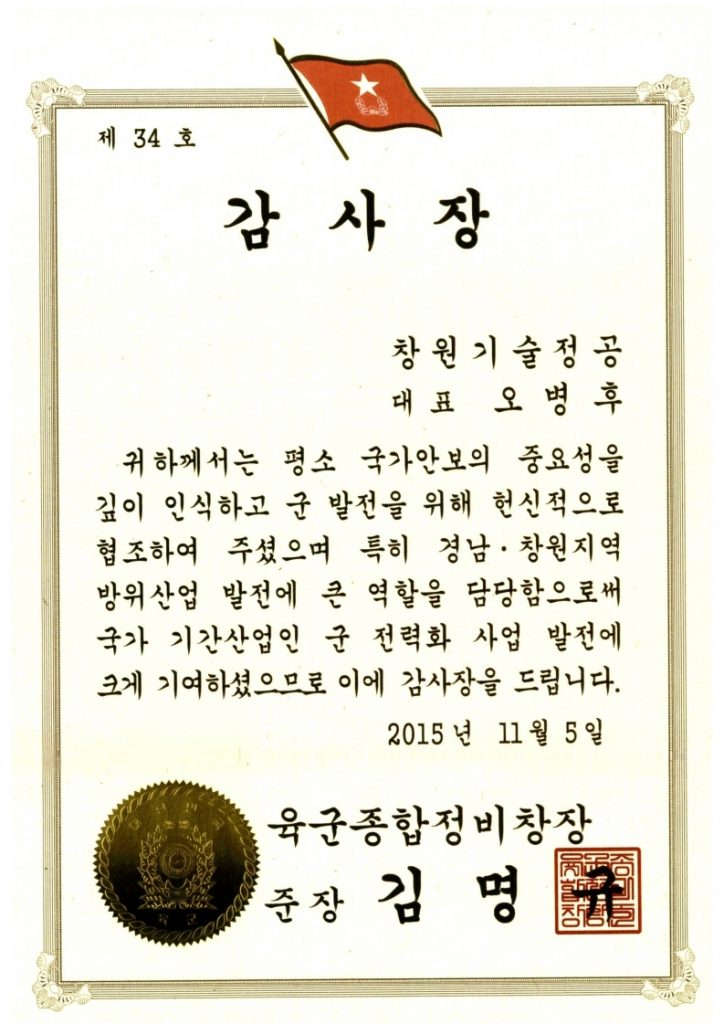 제 34 호
감 사 장
창원기술정공
대표 오병후
귀하께서는 평소 국가안보의 중요성을
깊이 인식하고 군 발전을 위해 헌신적으로
협조하여 주셨으며 특히 경남·창원지역
방위산업 발전에 큰 역할을 담당함으로써
국가 기간산업인 군 전력화 사업 발전에
크게 기여하셨으므로 이에 감사장을 드립니다.
2015년 11월 5일
육군종합정비창장
준장 김 명 규
육군